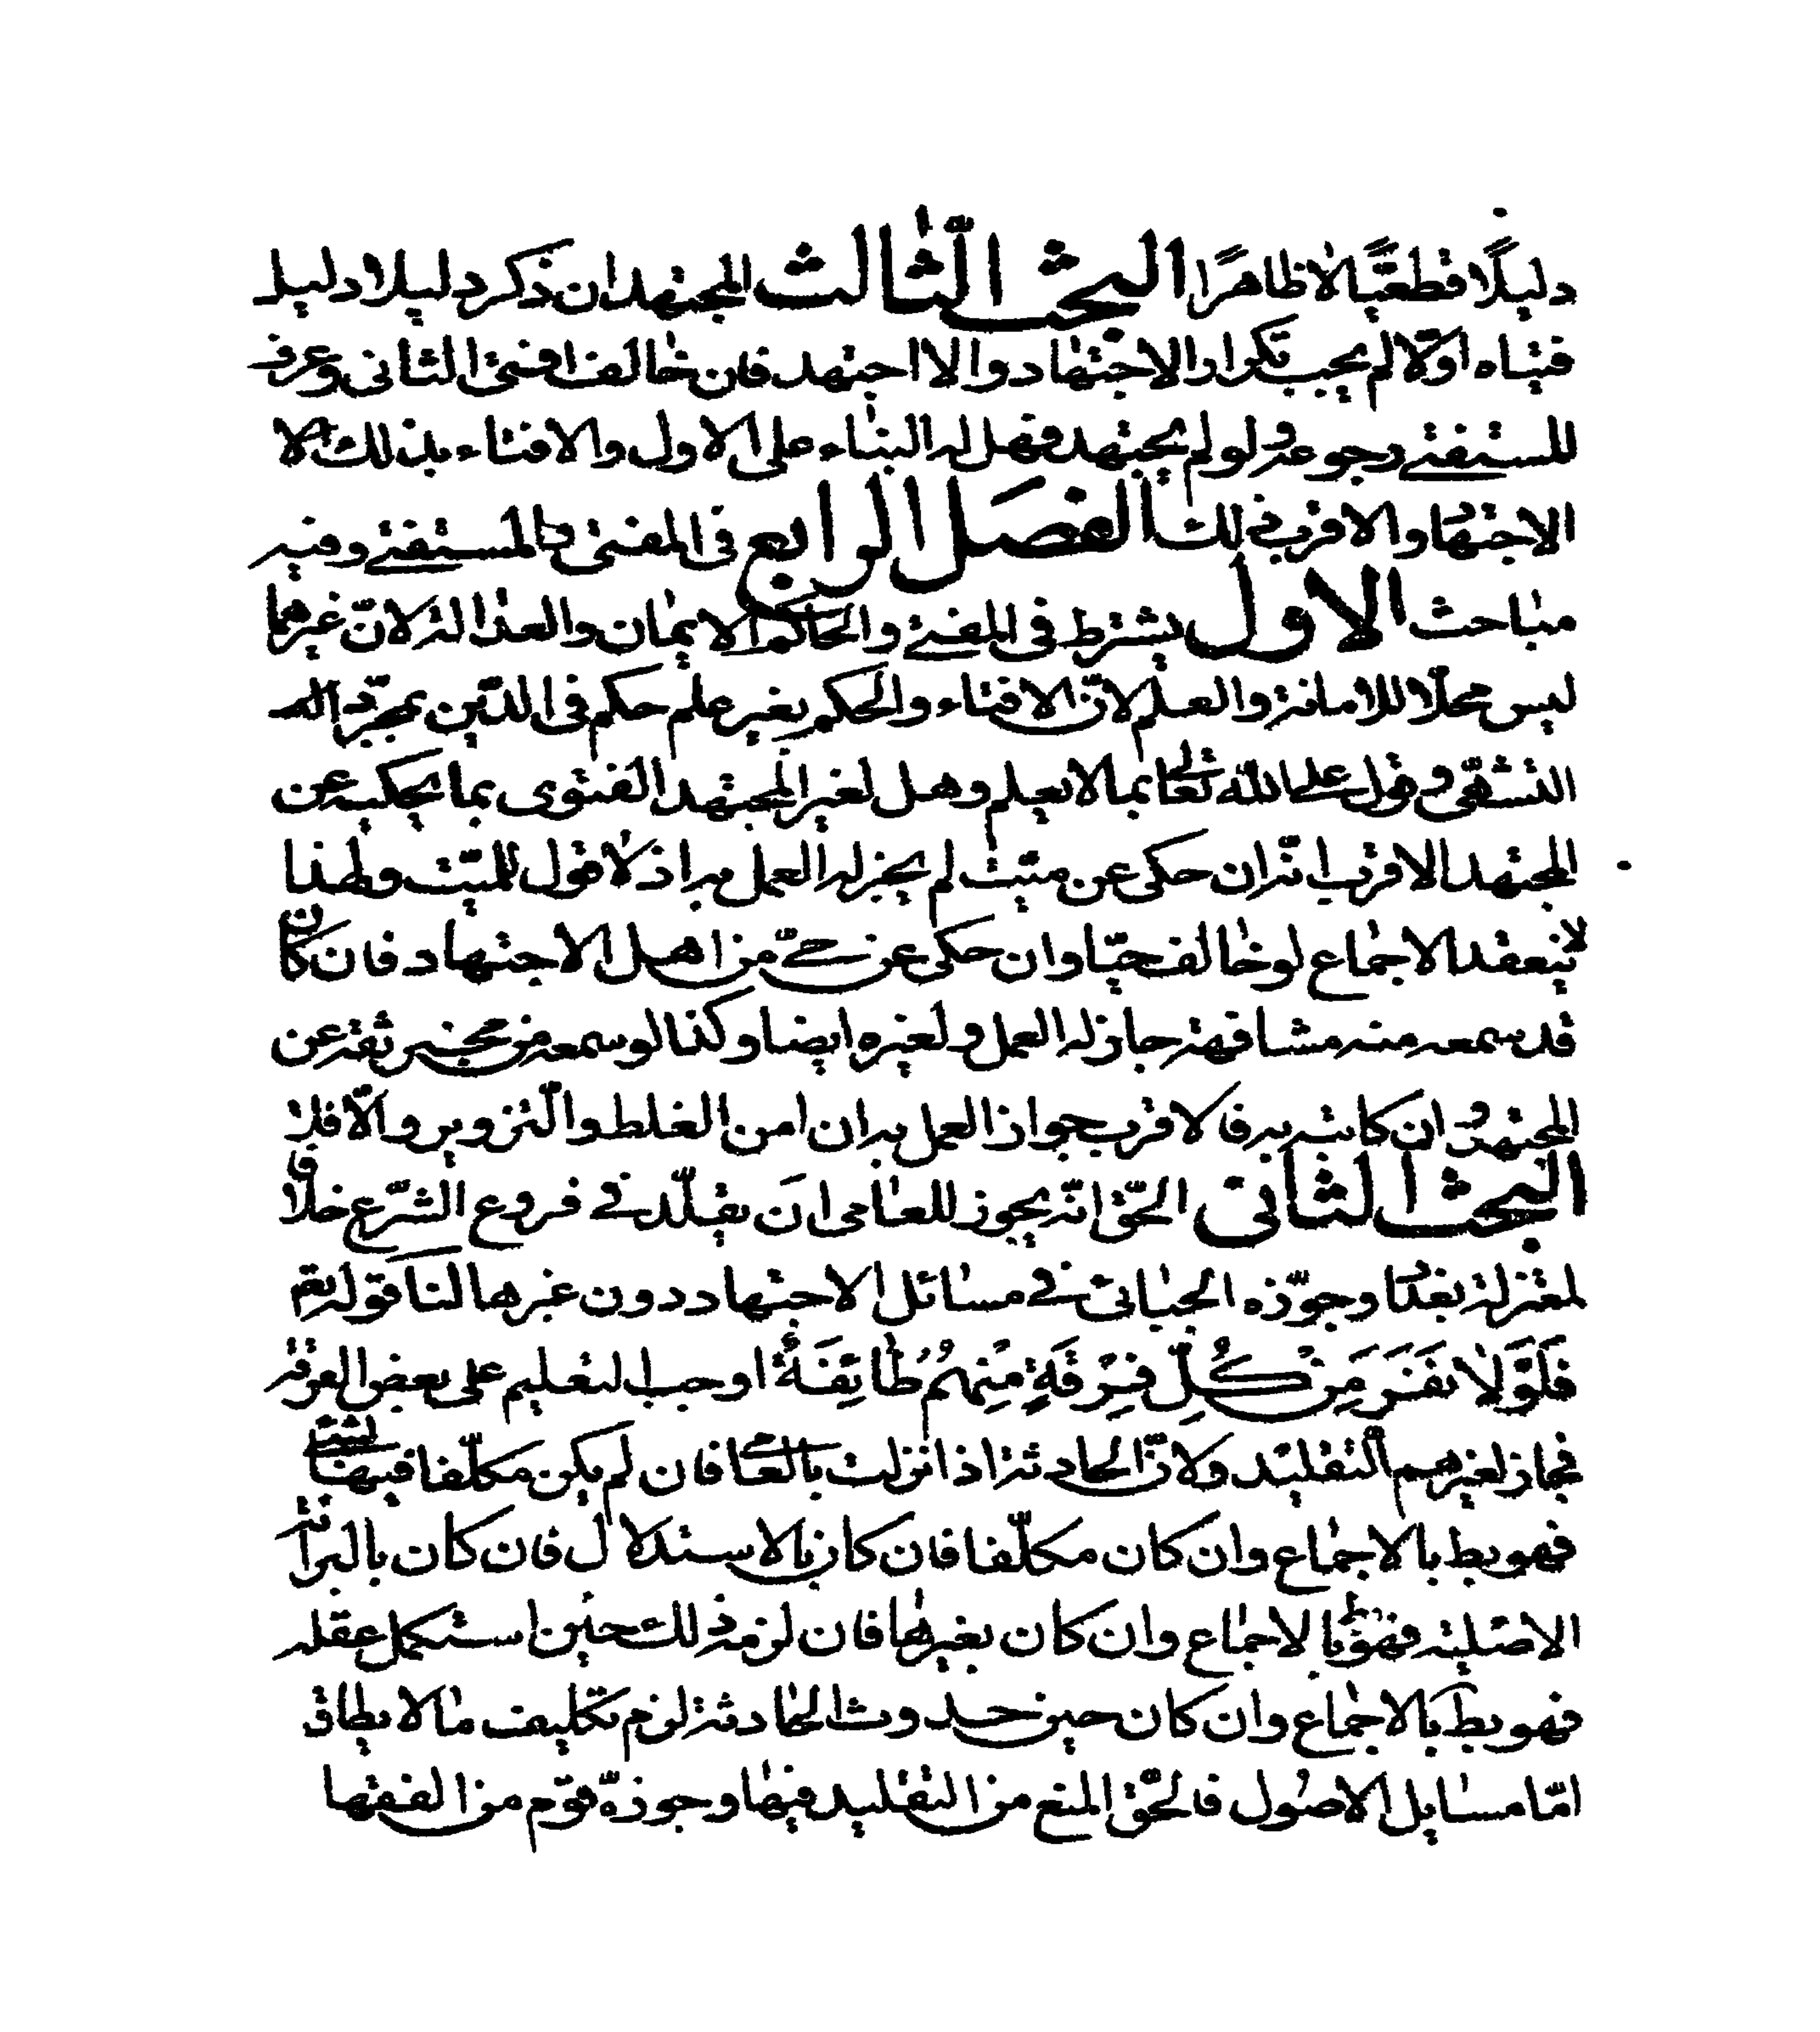 دليلًا قطعيًّا لا ظاهرًا البحث الثّالث المجتهد ان ذكر دليلا دليل
فتياه اوّلا لم يجب تكرار الاجتهاد والا اجتهد فان خالف افتى الثانى وعرف
المستفتى رجوعه ولو لم يجتهد فهل له البناء على الاول والافتاء بذلك ام لا
الاجتهاد والاقرب ذلك الفصل الرابع فى المفتى والمستفتى وفيه
مباحث الاول يشترط فى المفتى والحاكم الايمان والعدالة لانّ غيرهما
ليس محلّا للامانة والعلم لانّ الافتاء والحكم بغير علم حكم فى الدّين بمجرّد
التشهّى وقول على الله تعالى بما لا يعلم وهل لغير المجتهد الفتوى بما يحكيه عن
المجتهد الاقرب انّه ان حكى عن ميّت لم يجز له العمل به اذ لا قول للميّت ولهذا
لا ينعقد الاجماع لو خالف حيّا وان حكى عن حىّ من اهل الاجتهاد فان كان
قد سمعه منه مشافهة جاز له العمل ولغيره ايضا وكذا لو سمعه من مخبر ثقة عن
المجتهد وان كاتبه به فالاقرب جواز العمل به ان امن الغلط والتّزوير والّا فلا
البحث الثانى الحّق انّه يجوز للعامى ان يقلّد فى فروع الشّرع خلافا
لمعتزلة بغداد وجوّزه الجبائى فى مسائل الاجتهاد دون غيرها لنا قوله تعم
فَلَوْلا نَفَرَ مِنْ كُلِّ فِرْقَةٍ مِنْهُمْ طائِفَةٌ اوجب التعليم على بعض الفرقة
فجاز لغيرهم التّقليد ولانّ الحادثة اذا نزلت بالعامى فان لم يكن مكلّفا فيها بشئ
فهو بط بالاجماع وان كان مكلّفا فان كان بالاستدلال فان كان بالبرائة
الاصلية فهو بط بالاجماع وان كان بغيرها فان لزمه ذلك حين استكمل عقله
فهو بط بالاجماع وان كان حين حدوث الحادثة لزم تكليف ما لا يطاق
امّا مسايل الاصول فالحّق المنع من التقليد فيها وجوّزه قوم من الفقها